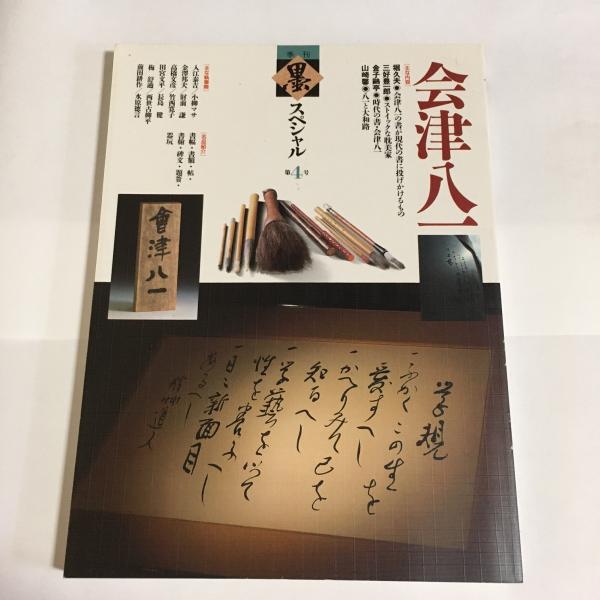 会津八一
主な内容
堀久夫●会津八一の書が現代の書に投げかけるもの
三好豊一郎●ストイックな耽美家
金子鷗亭●時代の書・会津八一
山崎馨●八一と大和路
季刊
墨スペシャル
第4号
主な執筆陣
入江泰吉／小柳マサ
金澤邦夫／財前 謙
高橋文彦／竹西寛子
田宮文平／長島 健
梅 舒適／西世古柳平
前田耕作／水原徳言
名品紹介
書幅・書額・帖・
書簡・碑文・題簽・
器玩
會津八一
学規
一ふかくこの生を
愛すへし
一かへりみて己を
知るへし
一学藝を以て
性を養ふへし
一日々新面目
あるへし